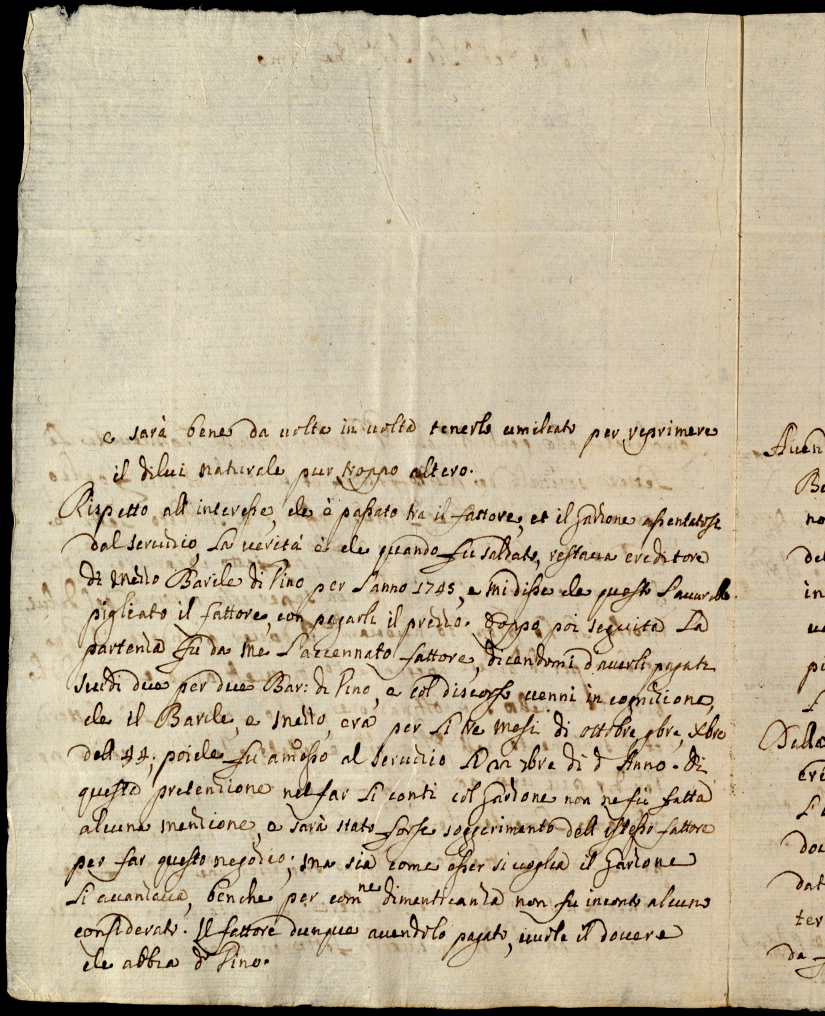 e sarà bene da volta in volta tenerlo umiliato per reprimere
il dilui naturale pur troppo altero.
Rispetto all'interesse, che è passato tra il fattore, et il Garzone assentatosi
dal servizio, La verità è che quando fù saldato, restava creditore
di mezzo Barile di Vino per l'anno 1745, e mi disse che questo l'avarebbe
pigliato il fattore, con pagarli il prezzo. Doppo poi seguita La
partenza fù da me l'accennato fattore, dicendomi d'averli pagati
scudi due per due Bar: di Vino, e col discorso venni in cognizione,
che il Barile, e mezzo, era per li tre mesi di ottobre, 9bre, Xbre
del 44; poiche fu amesso al servizio li 7bre di d.º Anno. Di
questa pretenzione nel far li conti col Garzone non ne fù fatta
alcuna menzione, e sarà stato forse soggerimento dell'istesso fattore
per far questo negozio; ma sia come esser si voglia il Garzone
li avanzava, benche per com.ne dimenticanza non fu in conto alcuno
considerato. Il fattore dunque avendolo pagato, vuole il dovere
che abbia d.º Vino.
Aven
Ba
no
del
in
ve
pi
L
Della
cri
L'a
dov
dat
ter
da